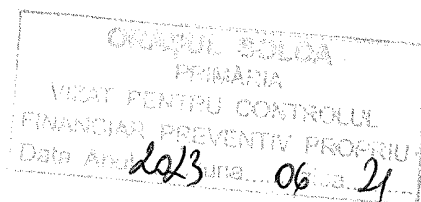 ORAȘUL SOLCA
PRIMĂRIA
VIZAT PENTRU CONTROLUL
FINANCIAR PREVENTIV PROPRIU
Data Anul 2023 Luna 06 Ziua 21